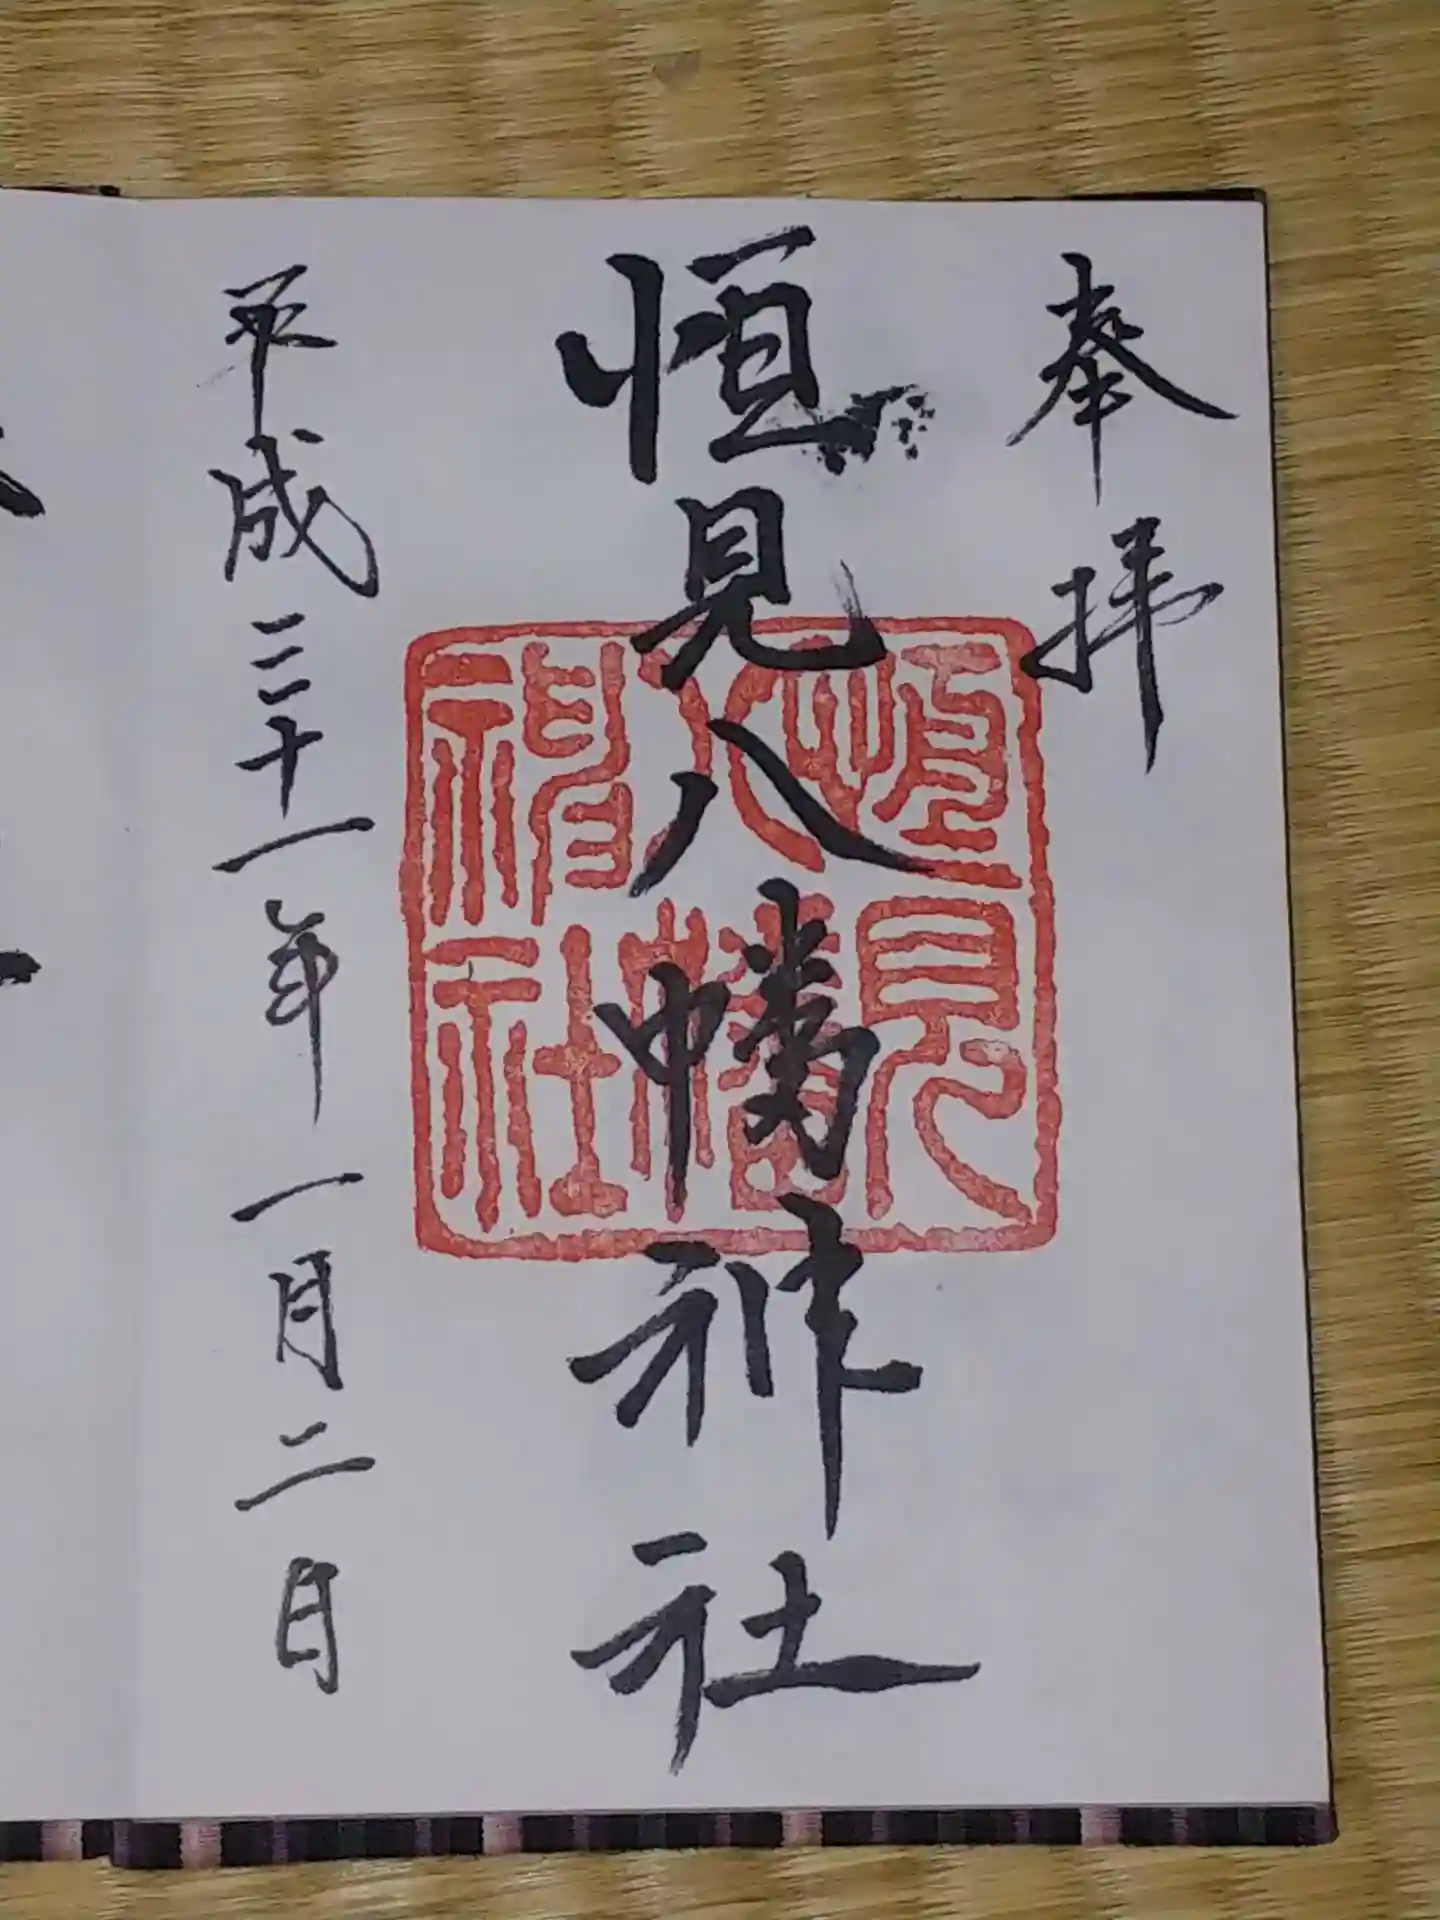 奉拝
恒見八幡神社
恒見八幡神社
平成三十一年一月二日